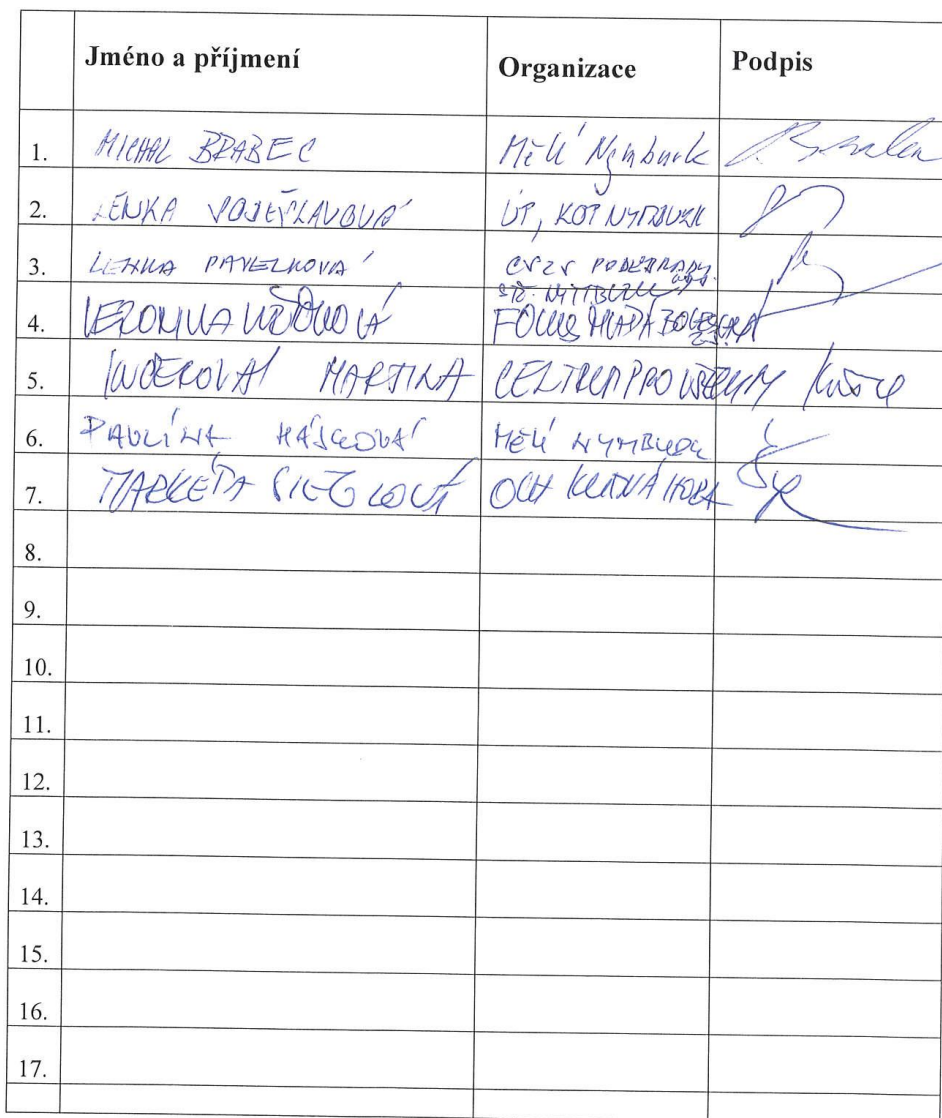 Jméno a příjmení Organizace Podpis
1. MICHAL BRABEC MěÚ Nymburk
2. LENKA ÚP, KOP NYMBURK
3. LENKA PAVELKOVÁ CSZS PODĚBRADY
STŘ. NYMBURK
4. VERONIKA FOCUS MLADÁ BOLESLAV
5. KUČEROVÁ MARTINA CENTRUM PRO VŠECHNY
6. PAVLÍNA HÁJKOVÁ MĚÚ NYMBURK
7. MARKÉTA SIEGLOVÁ OCH KUTNÁ HORA
8.
9.
10.
11.
12.
13.
14.
15.
16.
17.